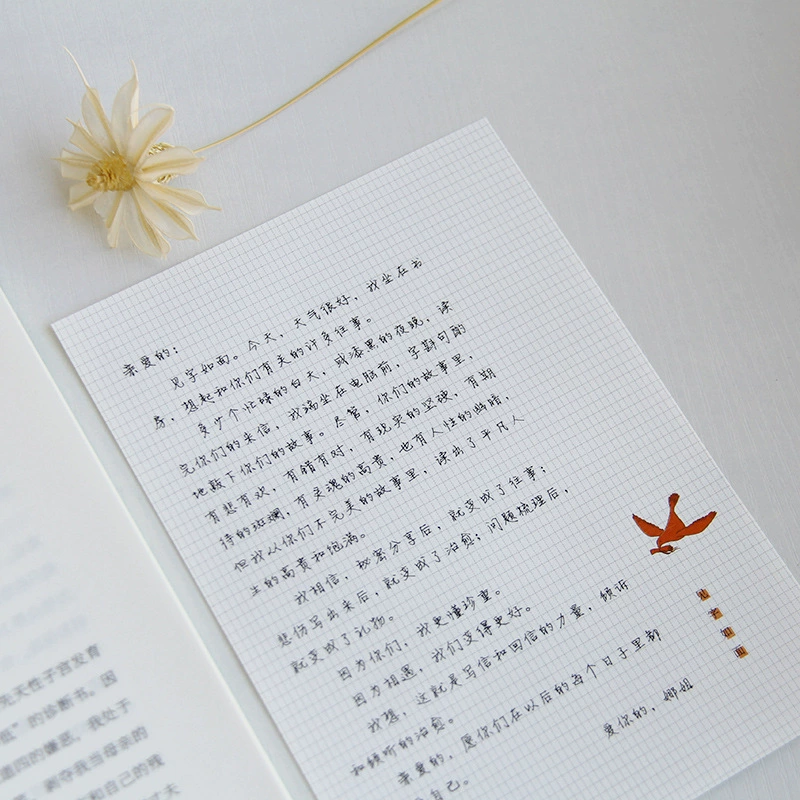 亲爱的：
见字如面。今天，天气很好，我坐在书
房，想起和你们有关的许多往事。
多少个忙碌的白天，或漆黑的夜晚，读
完你们的来信，我端坐在电脑前，字斟句酌
地敲下你们的故事。尽管，你们的故事里，
有悲有欢，有错有对，有现实的坚硬，有期
待的斑斓，有灵魂的高贵，也有人性的幽暗，
但我从你们不完美的故事里，读出了平凡人
生的高贵和饱满。
我相信，秘密分享后，就变成了往事；
悲伤写出来后，就变成了治愈；问题梳理后，
就变成了礼物。
因为你们，我更懂珍重。
因为相遇，我们变得更好。
我想，这就是写信和回信的力量，倾诉
和倾听的治愈。
亲爱的，愿你们在以后的每个日子里都
自己。
爱你的，娜姐
如面
先天性子宫发育
低”的诊断书。因
的嫌恶，我处于
剥夺我当母亲的
和自己的残
天